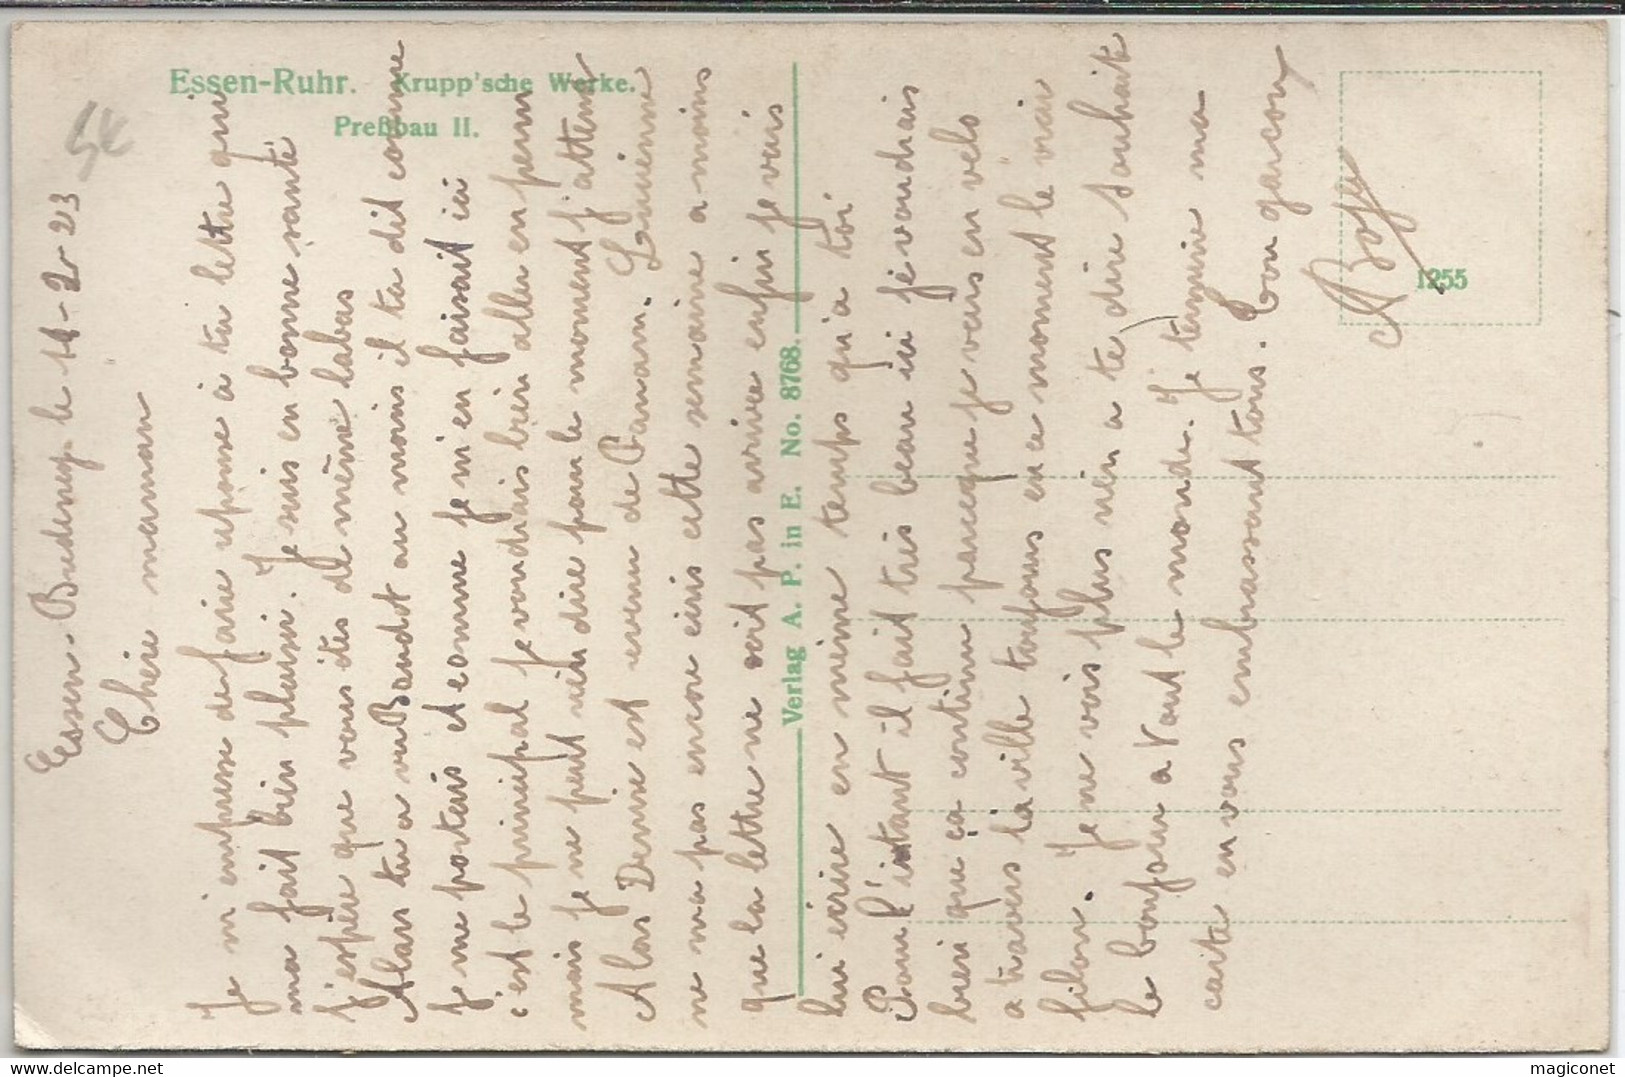 Essen-Ruhr. Krupp'sche Werke.
Preßbau II.
5€
Essen-Bredeney le 11-2-23
Chère maman
Je m'empresse de faire reponse à ta lettre qui
ma fait bien plaisir. Je suis en bonne santé
j'espère que vous êtes de même labas
Alors tu a vu Baudot au moins il ta dit comme
je me portais et comme je m'en faisait ici
c'est le principal je voudrais bien aller en perm
mais je ne peut rien dire pour le moment j'attend
Alors Denise est revenu de Pamam. Lucienne
ne ma pas encore écris cette semaine a moins
que la lettre ne soit pas arrivée enfin je vais
lui écrire en même temps qu'a toi
Pour l'instant il fait très beau ici je voudrais
bien que ça continu parceque je vais en velo
a travers la ville toujours en ce moment le vrai
filon. Je ne vois plus rien a te dire souhaite
le bonjour a tout le monde. Je termine ma
carte en vous embrassant tous. Ton garçon
Verlag A. P. in E. No. 8768.
1255
magiconet